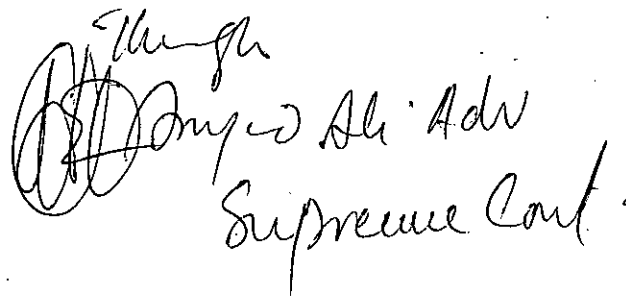 Through
Amjad Ali Adv
Supreme Court.